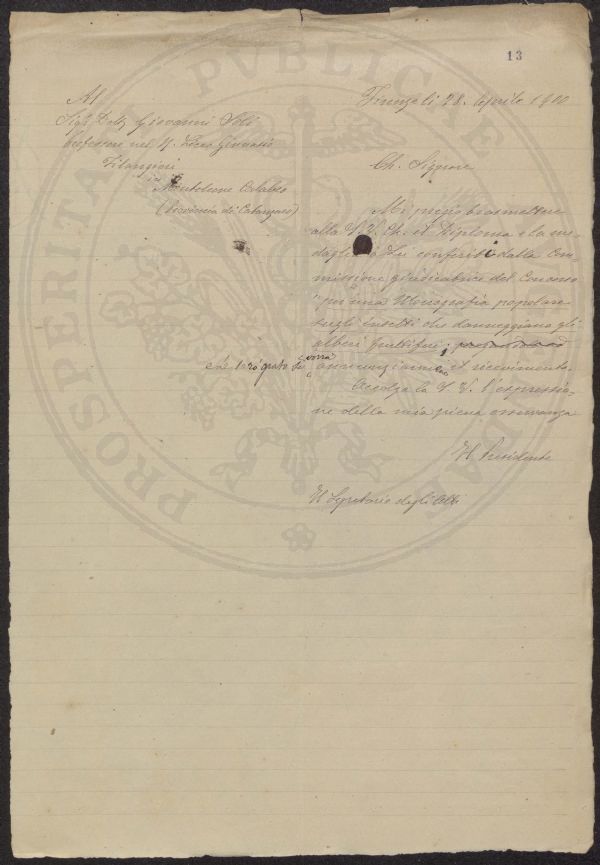 13
Firenze lì 28. Aprile 1900
Al
Sigr Dottr Giovanni
Professore nel R. Liceo Ginnasio
Filangieri
in
Monteleone Calabro
(Provincia di Catanzaro)
Ch. Signore
Mi pregio trasmettere
alla S. V. Ch. il Diploma e la me-
daglia a Lei conferiti dalla Com-
missione giudicatrice del Concorso
"per una Monografia popolare
sugli insetti che danneggiano gli
alberi fruttiferi,
che sarò grato se vorrà annunziarmi il ricevimento
Accolga la S. V. l'espressio-
ne della mia piena osservanza
Il Presidente
Il Segretario degli Atti
PROSPERITATI PVBLICAE